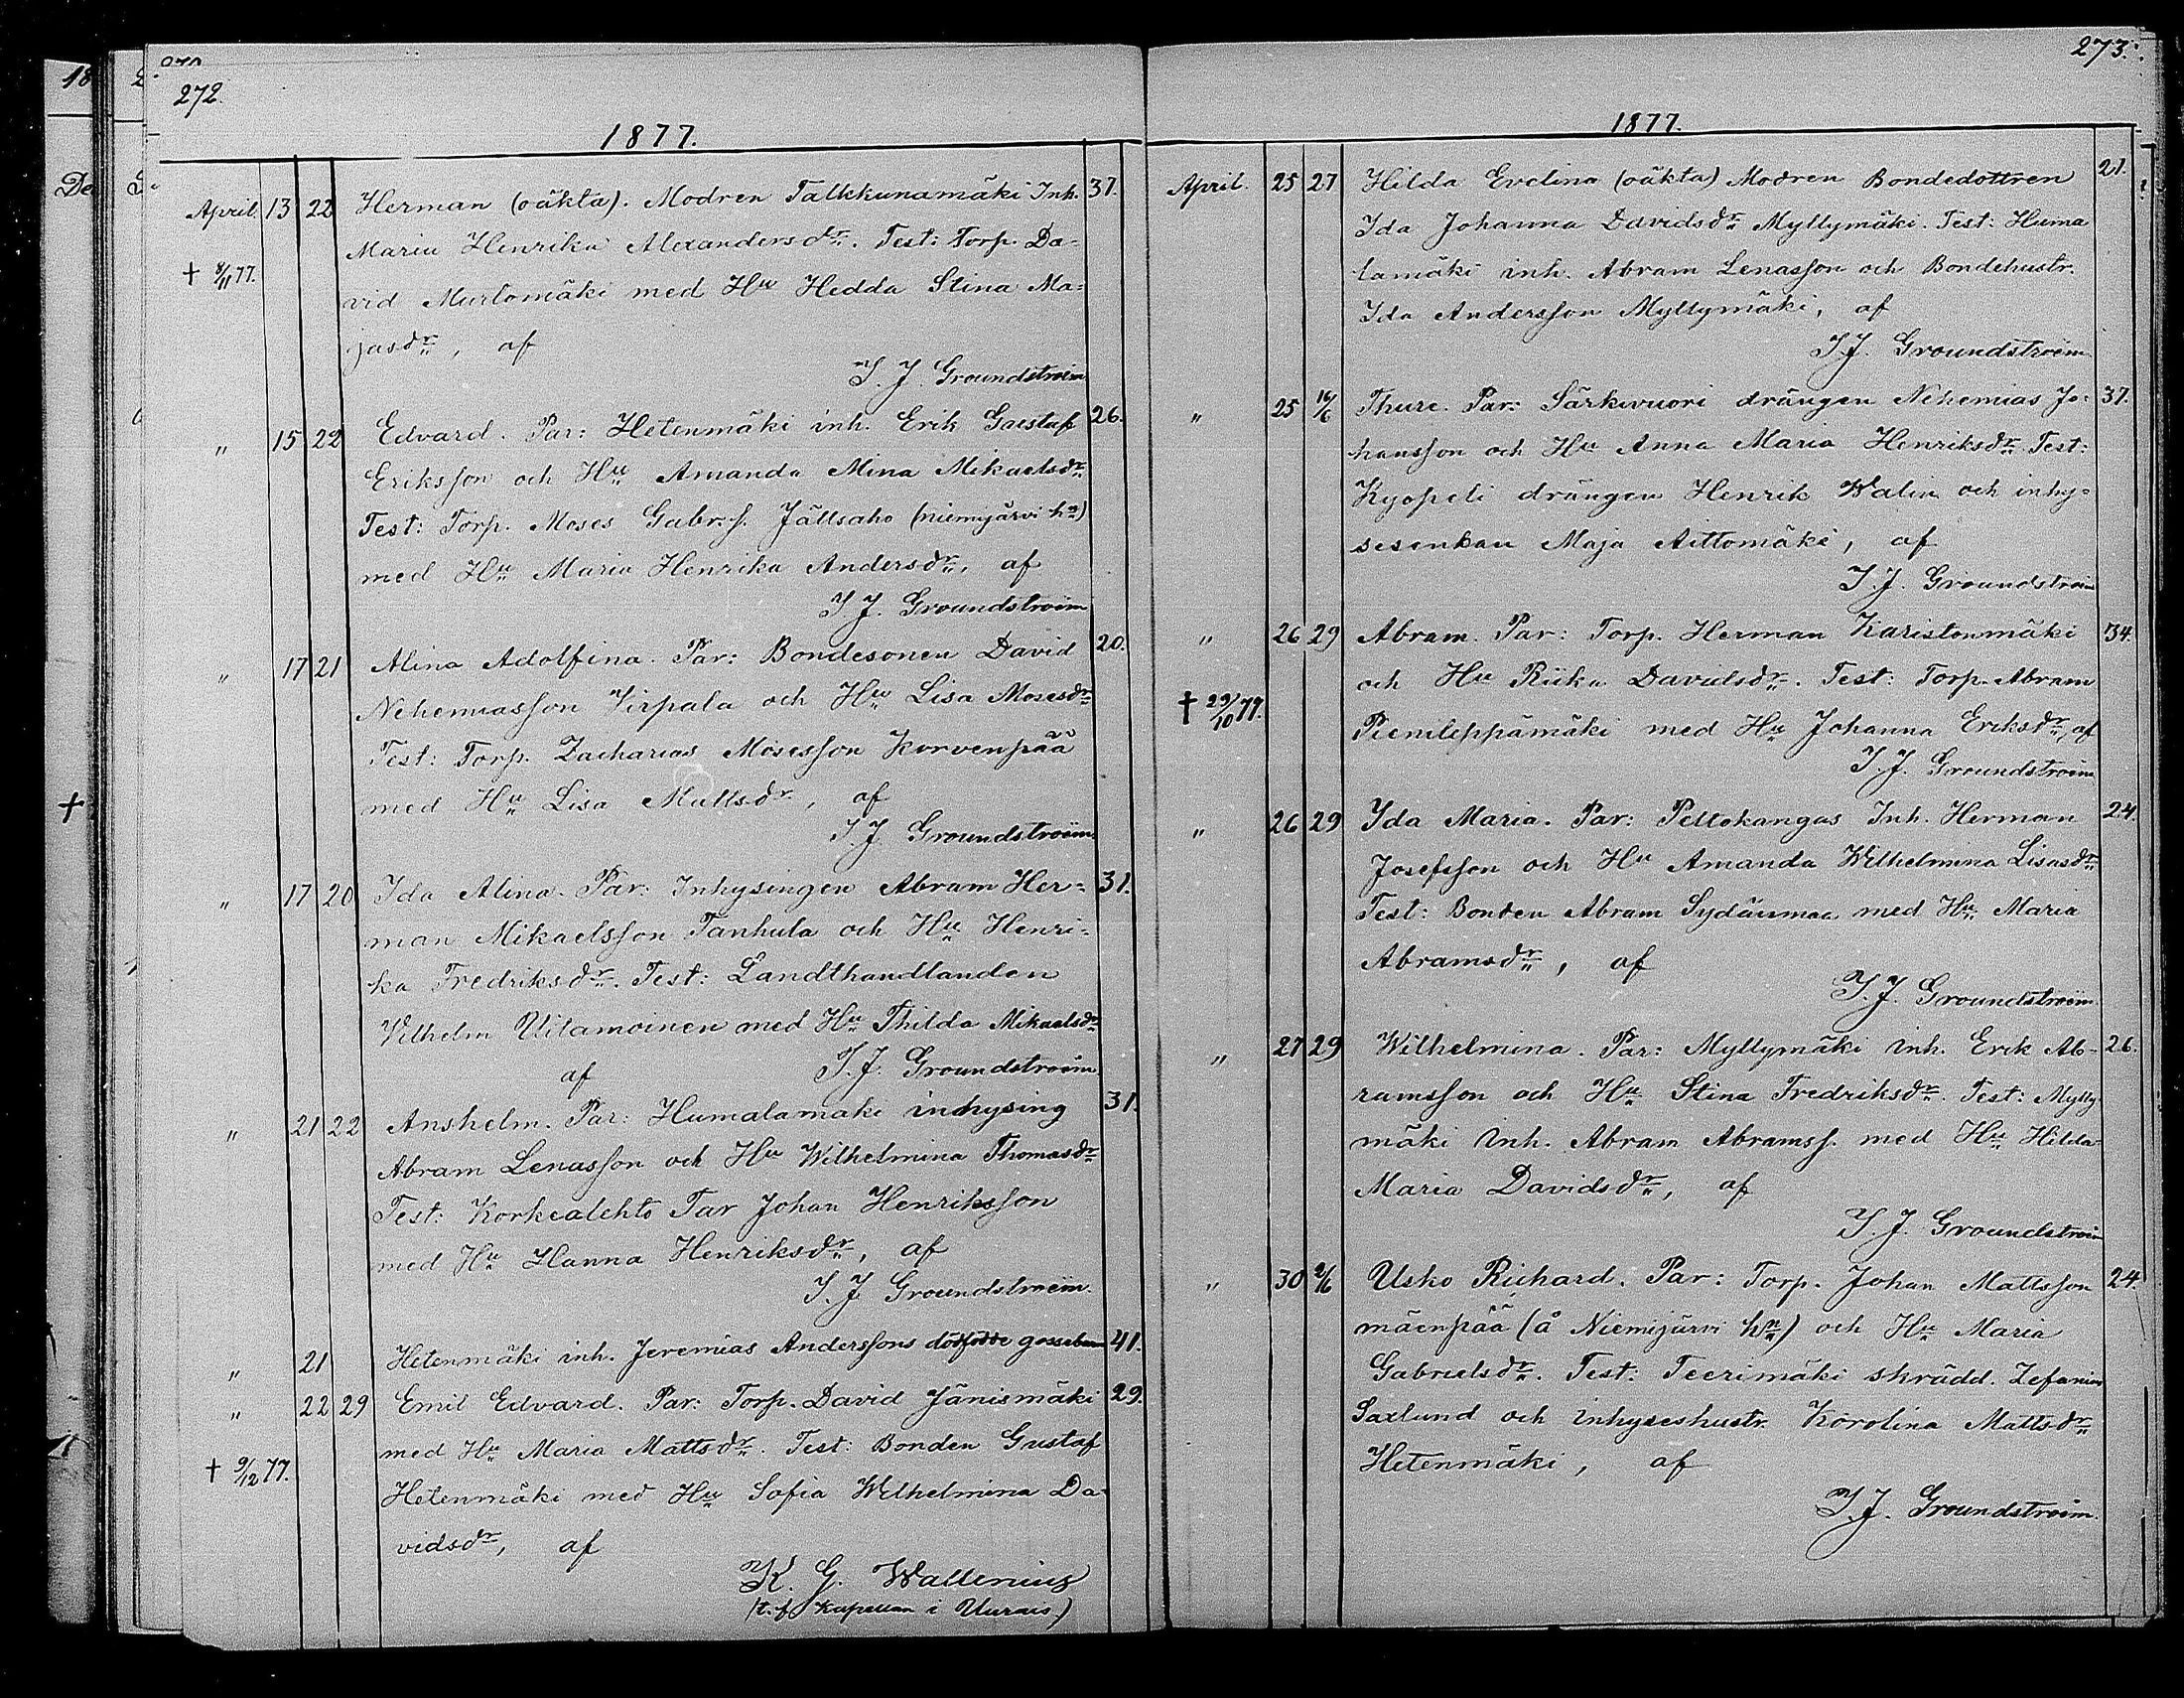 272.
1877.
April. 13 22 Herman (oäkta). Modren Talkkunamäki Inh. 37.
Maria Henrika Alexandersdr. Test: Torp. Da-
† 8/11 77. vid Murtomäki med Hu Hedda Stina Ma-
jasdr, af
I. J. Groundstroëm
" 15 22 Edvard. Par: Hetenmäki inh. Erik Gustaf 26.
Eriksson och Hu Amanda Mina Mikaelsdr
Test: Torp. Moses Gabr:s. Jältsaho (niemijärvi hn)
med Hu Maria Henrika Andersdr, af
I J. Groundstroëm
" 17 21 Alina Adolfina. Par: Bondesonen David 20.
Nehemiasson Virpala och Hu Lisa Mosesdr
Test: Torp. Zacharias Mosesson Korvenpää
med Hu Lisa Mattsdr, af
I. J. Groundstroëm.
" 17 20 Ida Alina. Par: Inhysingen Abram Her- 31.
man Mikaelsson Tanhula och Hu Henri-
ka Fredriksdr. Test: Landthandlanden
Vilhelm Uitamoinen med Hu Thilda Mikaelsdr
af I. J. Groundstroëm.
" 21 22 Anshelm. Par: Humalamäki inhysing 31.
Abram Lenasson och Hu Wilhelmina Thomasdr
Test: Korkealehto Tar Johan Henriksson
med Hu Hanna Henriksdr, af
I. J. Groundstroëm.
" 21 Hetenmäki inh. Jeremias Anderssons dödfödde gossebarn 41.
" 22 29 Emil Edvard. Par: Torp. David Jänismäki 29.
med Hu Maria Mattsdr. Test: Bonden Gustaf
† 9/12 77. Hetenmäki med Hu Sofia Wilhelmina Da-
vidsdr, af
K. G. Wallenius
(t. f. kapellan i Uurais)
273.
1877.
April. 25 27 Hilda Evelina (oäkta) Modren Bondedottren 21.
Ida Johanna Davidsdr Myllymäki. Test: Huma
lamäki inh. Abram Lenasson och Bondehustr.
Ida Andersson Myllymäki, af
I. J. Groundstroëm
" 25 16/6 Thure. Par: Särkivuori drängen Nehemias Jo- 37.
hansson och Hu Anna Maria Henriksdr. Test:
Kyöpeli drängen Henrik Walin och inhy-
sesenkan Maja Aittomäki, af
I. J. Groundstroëm
" 26 29 Abram. Par: Torp. Herman Karistonmäki 34.
och Hu Riika Davidsdr. Test: Torp. Abram
† 29/10 77. Pienileppämäki med Hu Johanna Eriksdr, af
I. J. Groundstroëm
" 26 29 Ida Maria. Par: Peltokangas Inh. Herman 24.
Josefsson och Hu Amanda Wilhelmina Lisasdr
Test: Bonden Abram Sydänmaa med Hu Maria
Abramsdr, af
I. J. Groundstroëm.
" 27 29 Wilhelmina. Par: Myllymäki Inh. Erik Ab- 26.
ramsson och Hu Stina Fredriksdr. Test: Mylly-
mäki Inh. Abram Abramss. med Hu Hilda
Maria Davidsdr, af
I. J. Groundstroëm
" 30 2/6 Usko Richard. Par: Torp. Johan Mattsson 24.
mäenpää (å Niemijärvi hmn) och Hu Maria
Gabrielsdr. Test: Teerimäki skrädd. Zefanias
Saxlund och Inhyseshustr. Karolina Mattsdr
Hetenmäki, af
I. J. Groundstroëm.